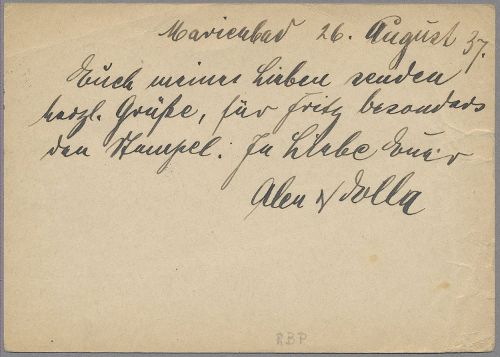 Marienbad 26. August 37.
Euch meinen Lieben senden
herzl. Grüße, für Fritz besonders
den Stempel. In Liebe Euer
Alex & Dolla
RBP